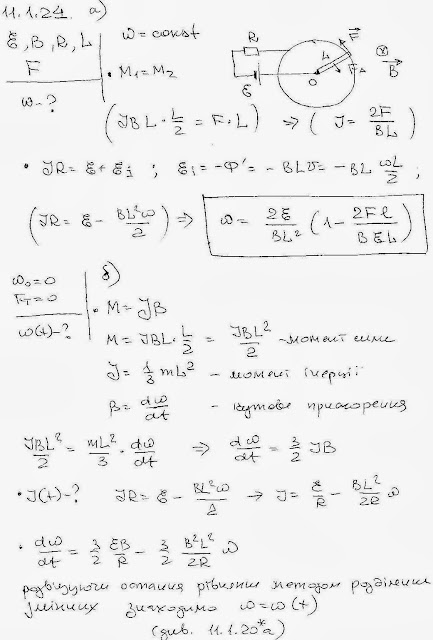 11.1.24 а)
ℰ, B, R, L
F
ω - ?
ω = const
• M₁ = M₂
R
ℰ
L
O
F
F▵
B
(JBL · L/2 = F · L) ⇒ (J = 2F/BL)
• JR = ℰ + ℰi ; ℰi = -Φ' = -BLυ = -BL ωL/2 ;
(JR = ℰ - BL²ω/2) ⇒ ω = 2ℰ/BL² (1 - 2FR/BℰL)
ω₀ = 0
Fт = 0
ω(t) - ?
б)
• M = Jβ
M = JBL · L/2 = JBL²/2 - момент сили
J = 1/3 mL² - момент інерції
β = dω/dt - кутове прискорення
JBL²/2 = mL²/3 · dω/dt ⇒ dω/dt = 3/2 JB
• J(t) - ? JR = ℰ - BL²ω/2 → J = ℰ/R - BL²/2R ω
• dω/dt = 3/2 ℰB/R - 3/2 B²L²/2R ω
розвізуючи останнє рівняння методом розділення
змінних знаходимо ω = ω(t)
(див. 11.1.20*а)